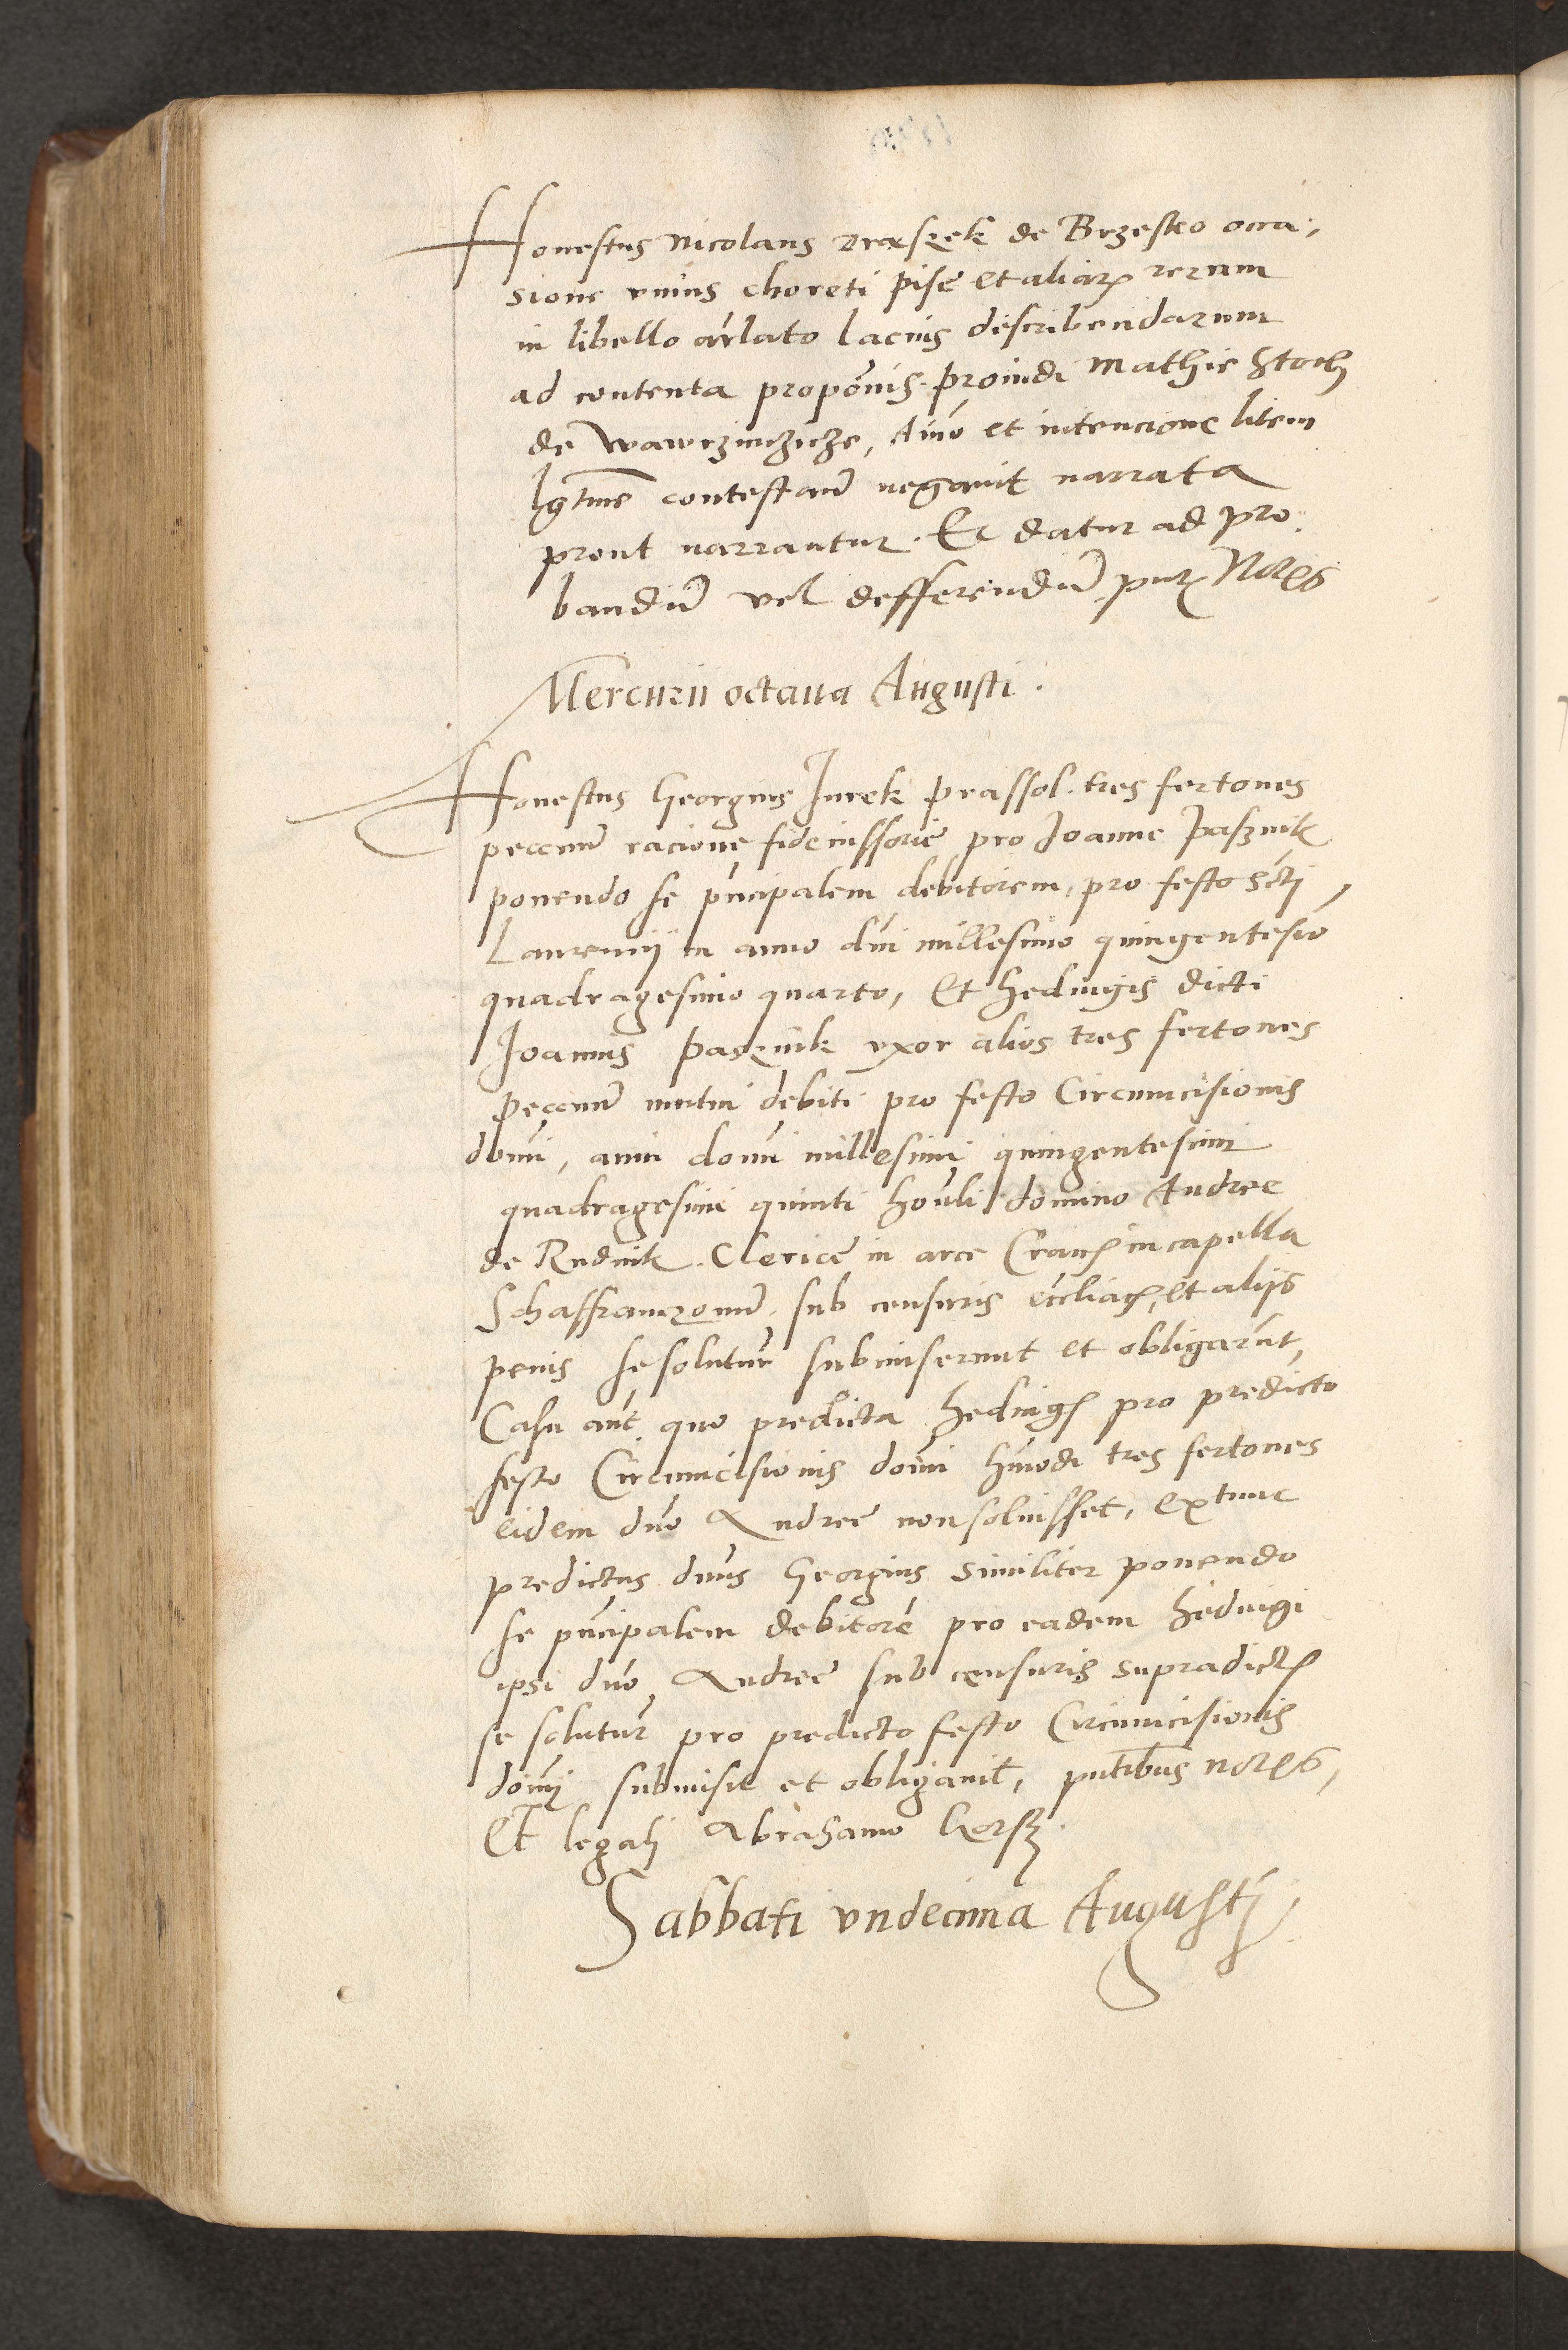 Honestus Nicolaus Draszek de Brzesko occa
sione vnius choreti pise et aliarum rerum
in libello oblato lacius describendarum
ad contenta proponis. proindi Mathie Stoch
de Wawrzinczicze, Aio et intencione litem
lgtime contestand negauit narrata
prout narrantur. Et datur ad pro
bandu vel defferendu pntz Notrs
Mercurii octaua Augusti.
Honestus Georgius Jurek prassol. tres fertones
peccunie racione fideiussorie pro Joanne Pasznik
ponendo se pncipalem debitorem, pro festo scti
Laurenty in anno dni millesimo quingentesio
quadragesimo quarto, Et Hedwigis dicti
Joannis Pasznik vxor alios tres fertones
peccunie mutui debiti pro festo Circumcisionis
domi, anni domi millesimi quingentesimi
quadragesimi quinti honli domino Andree
de Rudnik. Clerice in arce Crac in capella
Schaffranczonum, sub censuris eccliacis, et alijs
penis se soluturu submiserunt et obligarut,
Casu aut. quo predicta Hedwigs pro predicto
festo Circumcisionis domi hmodi tres fertones
eidem dno Andree non soluisset, extunc
predictus dnus Georgius similiter ponendo
se pncipalem debitore pro eadem Hedwigi
ipsi dno Andree sub censuris supradictis
se solutur pro predicto festo Circumcisionis
domj submisit et obligauit, pntibus notrs,
Et legalj Abrahamo
Sabbati vndecima Augustj